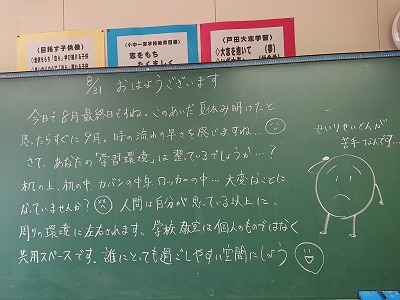 〈目指す子供像〉
〈小中一貫学校教育目標〉
志をもち
たくましく
〈戸田大志学習〉
〈大志を抱いて 〉(夢)
8/31 おはようございます
今日で8月最終日ですね。このあいだ夏休み明けたと
思ったらすぐに9月。時の流れの早さを感じますね…
さて、あなたの「学習環境」は整っているでしょうか…?
机の上、机の中、カバンの中身、ロッカーの中…大変なことに
なっていませんか? 人間は自分が思っている以上に、
周りの環境に左右されます。学校、教室は個人のものではなく
共用スペースです、誰にとっても過ごしやすい空間にしよう
せいりせいとんが
苦手なんです…